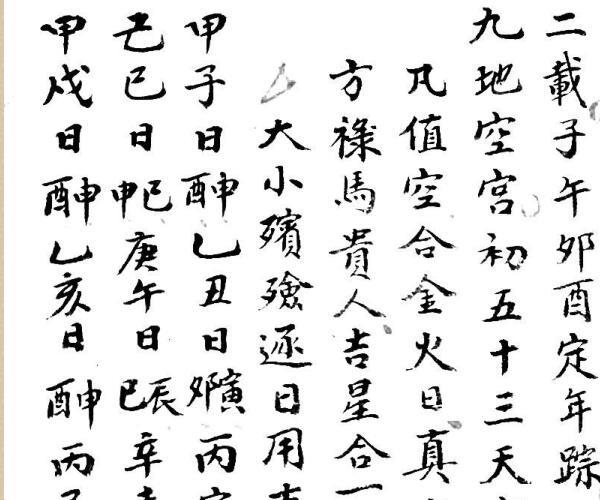 二載子午卯酉定年踪
九地空宮初五十三天
凡值空合金火日真
方祿馬貴人吉星合一
大小殯殮逐日用
甲子日申酉乙丑日寅卯丙
己巳日巳申庚午日辰巳辛
甲戌日申酉乙亥日申酉丙